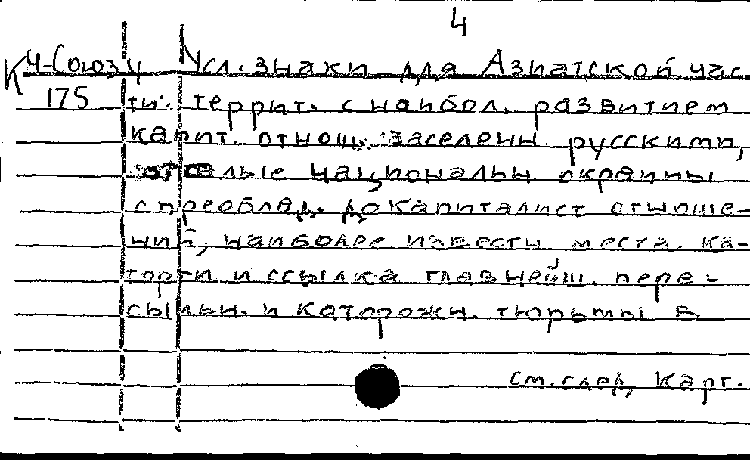 4
К Ч-Союз 4 Усл. знаки для Азиатской час
175 ти: террит. с наибол. развитием
капит. отнош. заселенн русскими,
отсталые национальн окраины
с преоблад. докапиталист отноше-
ний, наиболее известн. места. ка-
торги и ссылка главнейш. пере-
сыльн. и каторожн. тюрьмы в
см. след. карт.